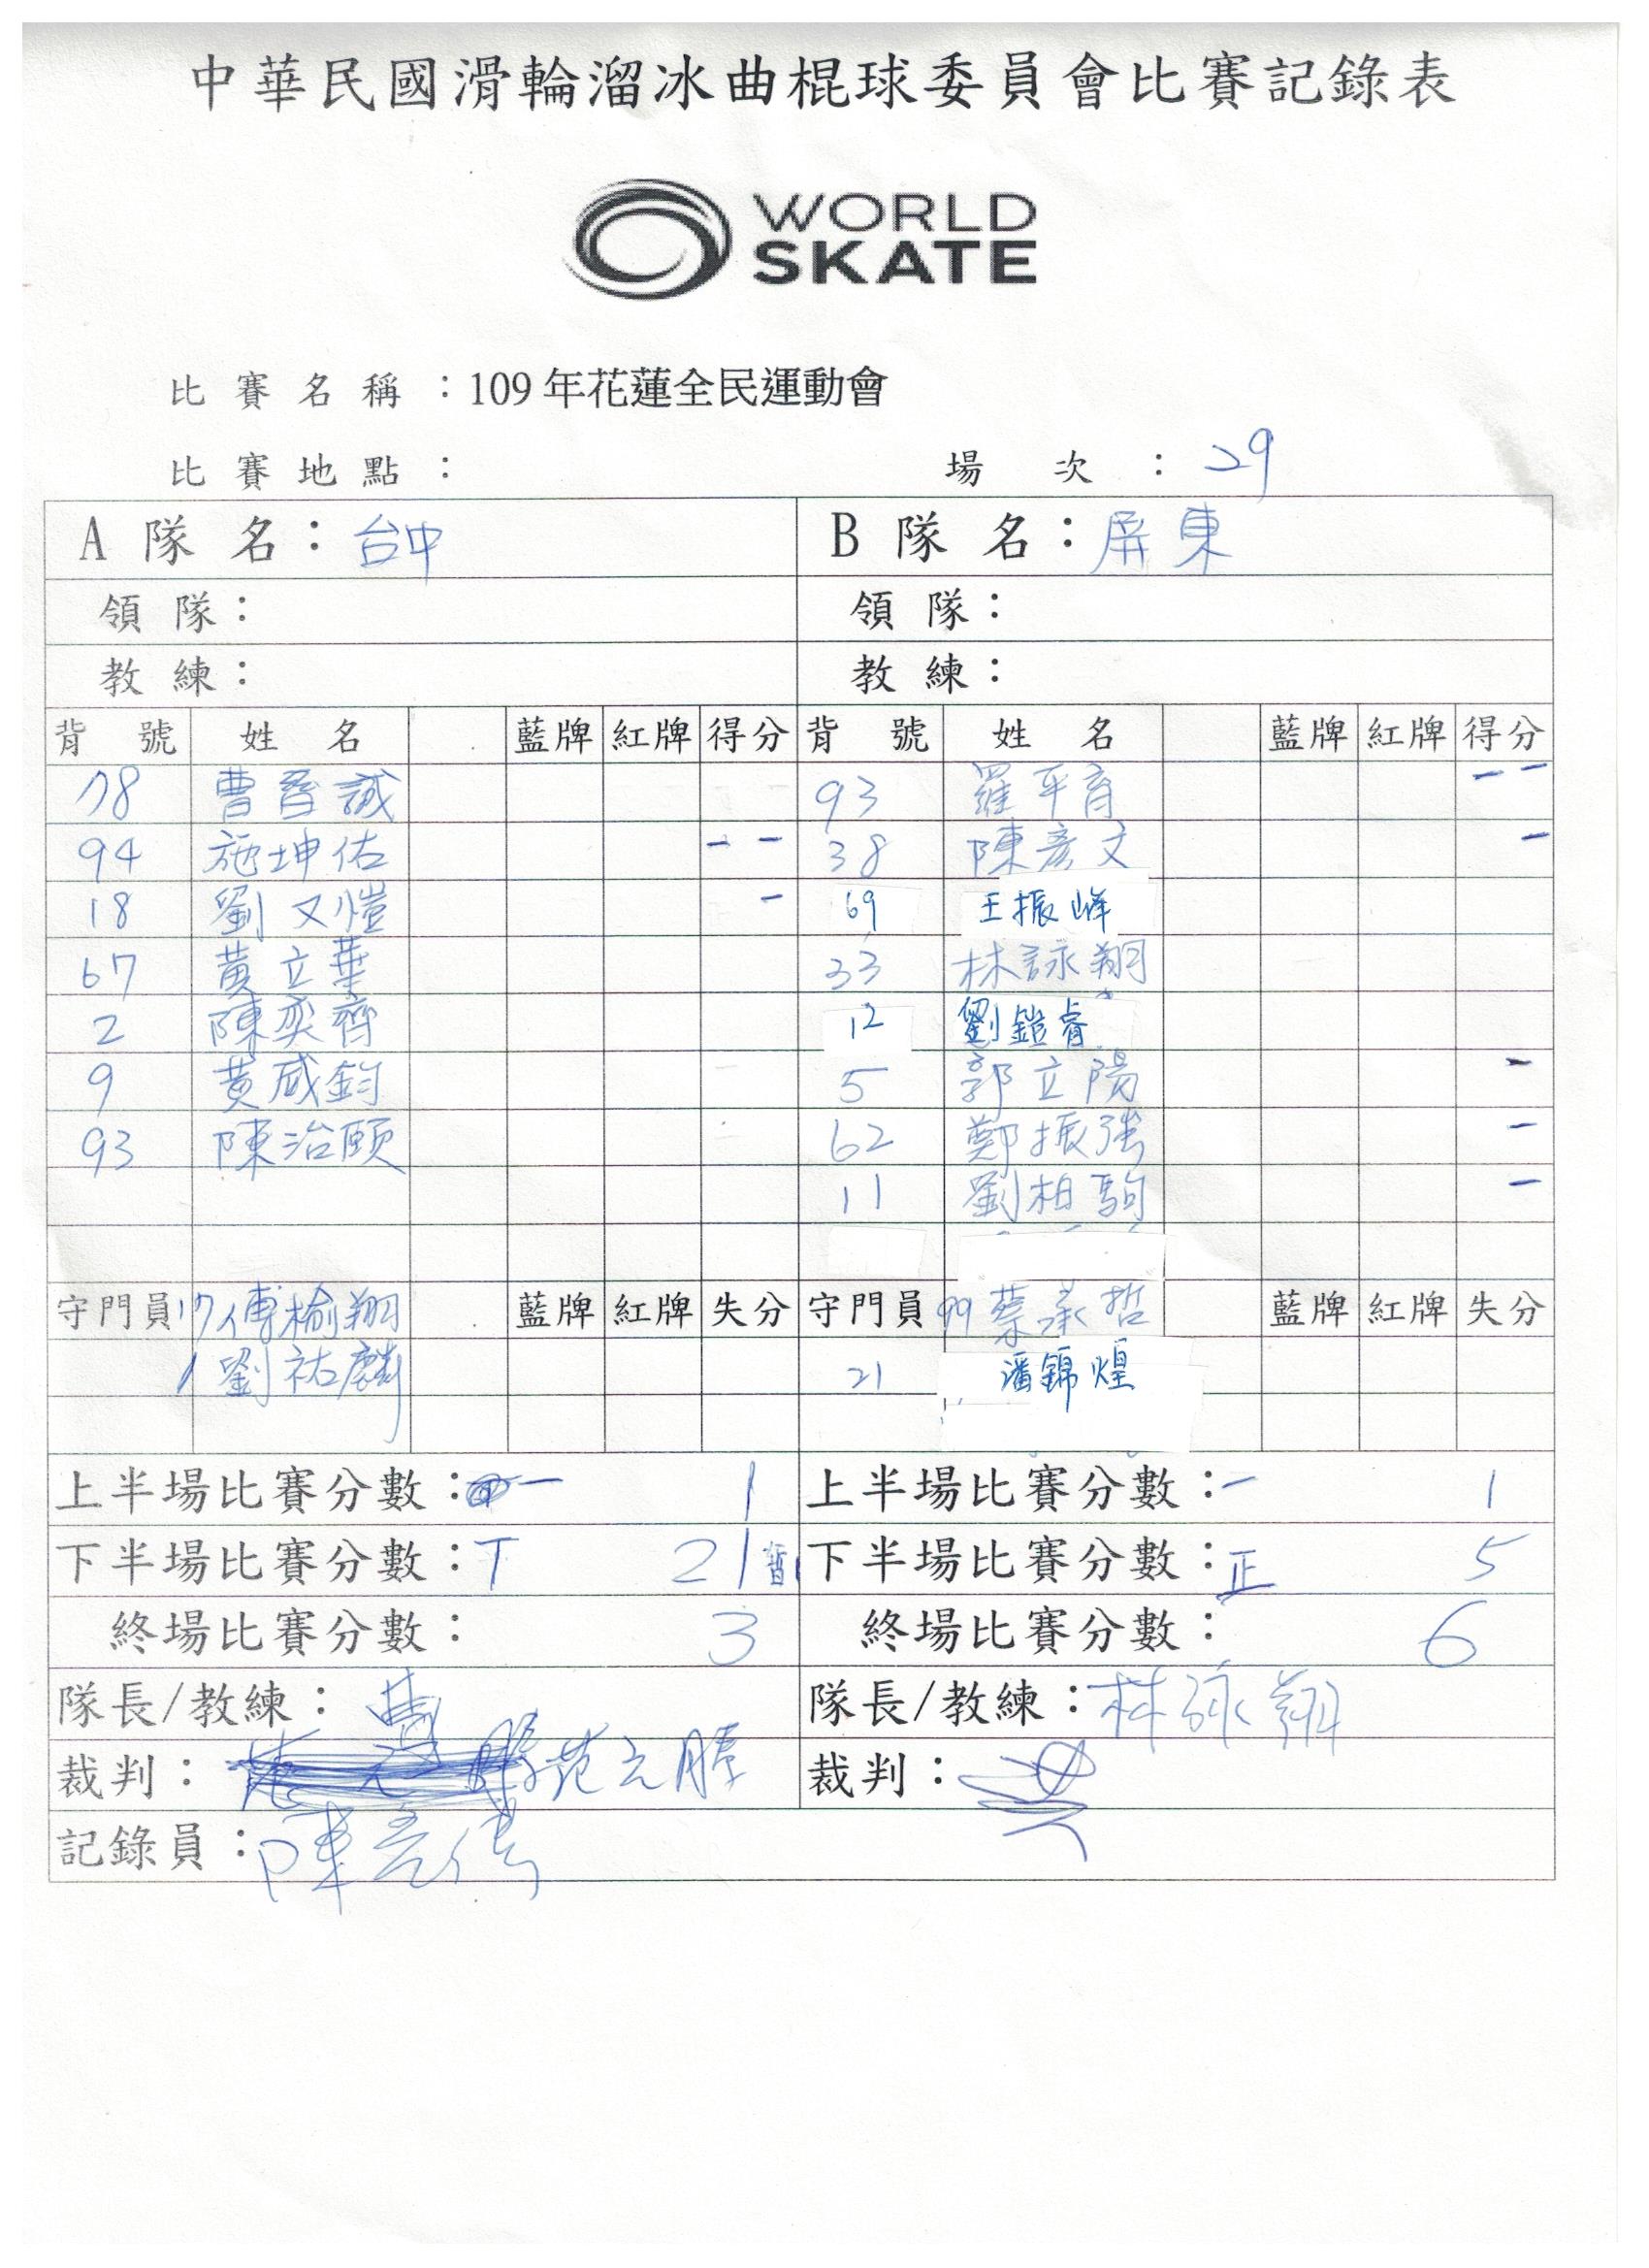 中華民國滑輪溜冰曲棍球委員會比賽記錄表
WORLD
SKATE
比賽名稱：109年花蓮全民運動會
比賽地點： 場次：29
A 隊名：台中 B 隊名：屏東
領隊： 領隊：
教練： 教練：
背號 姓名 藍牌 紅牌 得分 背號 姓名 藍牌 紅牌 得分
78 曹晉誠 93 羅平育 一 一
94 施坤佑 一 一 38 陳彥文 一
18 劉又愷 一 69 王振峰
67 黃立華 33 林詠翔
2 陳奕齊 12 劉鎧睿
9 黃威鈞 5 郭立陽 一
93 陳治頤 62 鄭振強 一
11 劉柏駒 一
守門員 17 傅榆翔 藍牌 紅牌 失分 守門員 99 蔡承哲 藍牌 紅牌 失分
1 劉祐麟 21 潘錦煌
上半場比賽分數：一 1 上半場比賽分數：一 1
下半場比賽分數：T 2 下半場比賽分數：正 5
終場比賽分數： 3 終場比賽分數： 6
隊長/教練：曹 隊長/教練：林詠翔
裁判：范元騰 裁判：
記錄員：陳